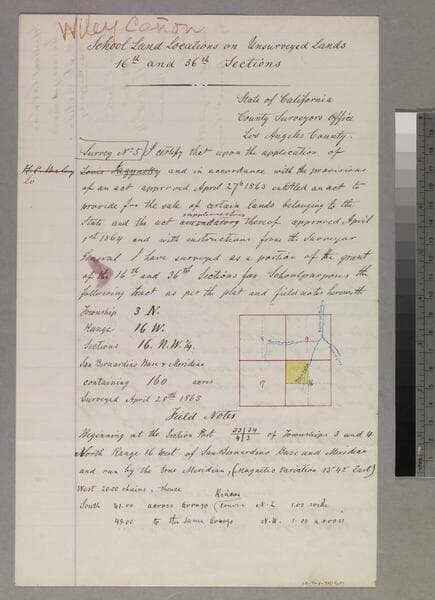 Wiley Cañon
School Land Locations on Unsurveyed Lands
16th and 36th Sections
State of California
County Surveyors Office
Los Angeles County.
Survey No 5 I certify that upon the application of
Louis and in accordance with the provisions
of an act approved April 27th 1863 entitled an act to
provide for the sale of certain lands belonging to the
supplementary
State and the act amendatory thereof approved April
1st 1864 and with instructions from the Surveyor
General I have surveyed as a portion of the grant
of the 16th and 36th Sections for School purposes the
following tract as per the plat and field notes herewith
Township 3 N.
Range 16 W.
Sections 16. N.W.¼
San Bernardino Base & Meridian
containing 160 acres
Surveyed April 25th 1865
9
16
Field Notes
Beginning at the Section Post 33|34 4|3 of Townships 3 and 4
North Range 16 west of San Bernardino Base and Meridian
and run by the true Meridian, (Magnetic Variation 13°42' East)
West 20.00 chains, thence
South 41.00 across arroyo N.E 1.00 wide
49.00 to the same arroyo N.W. 1.00 across